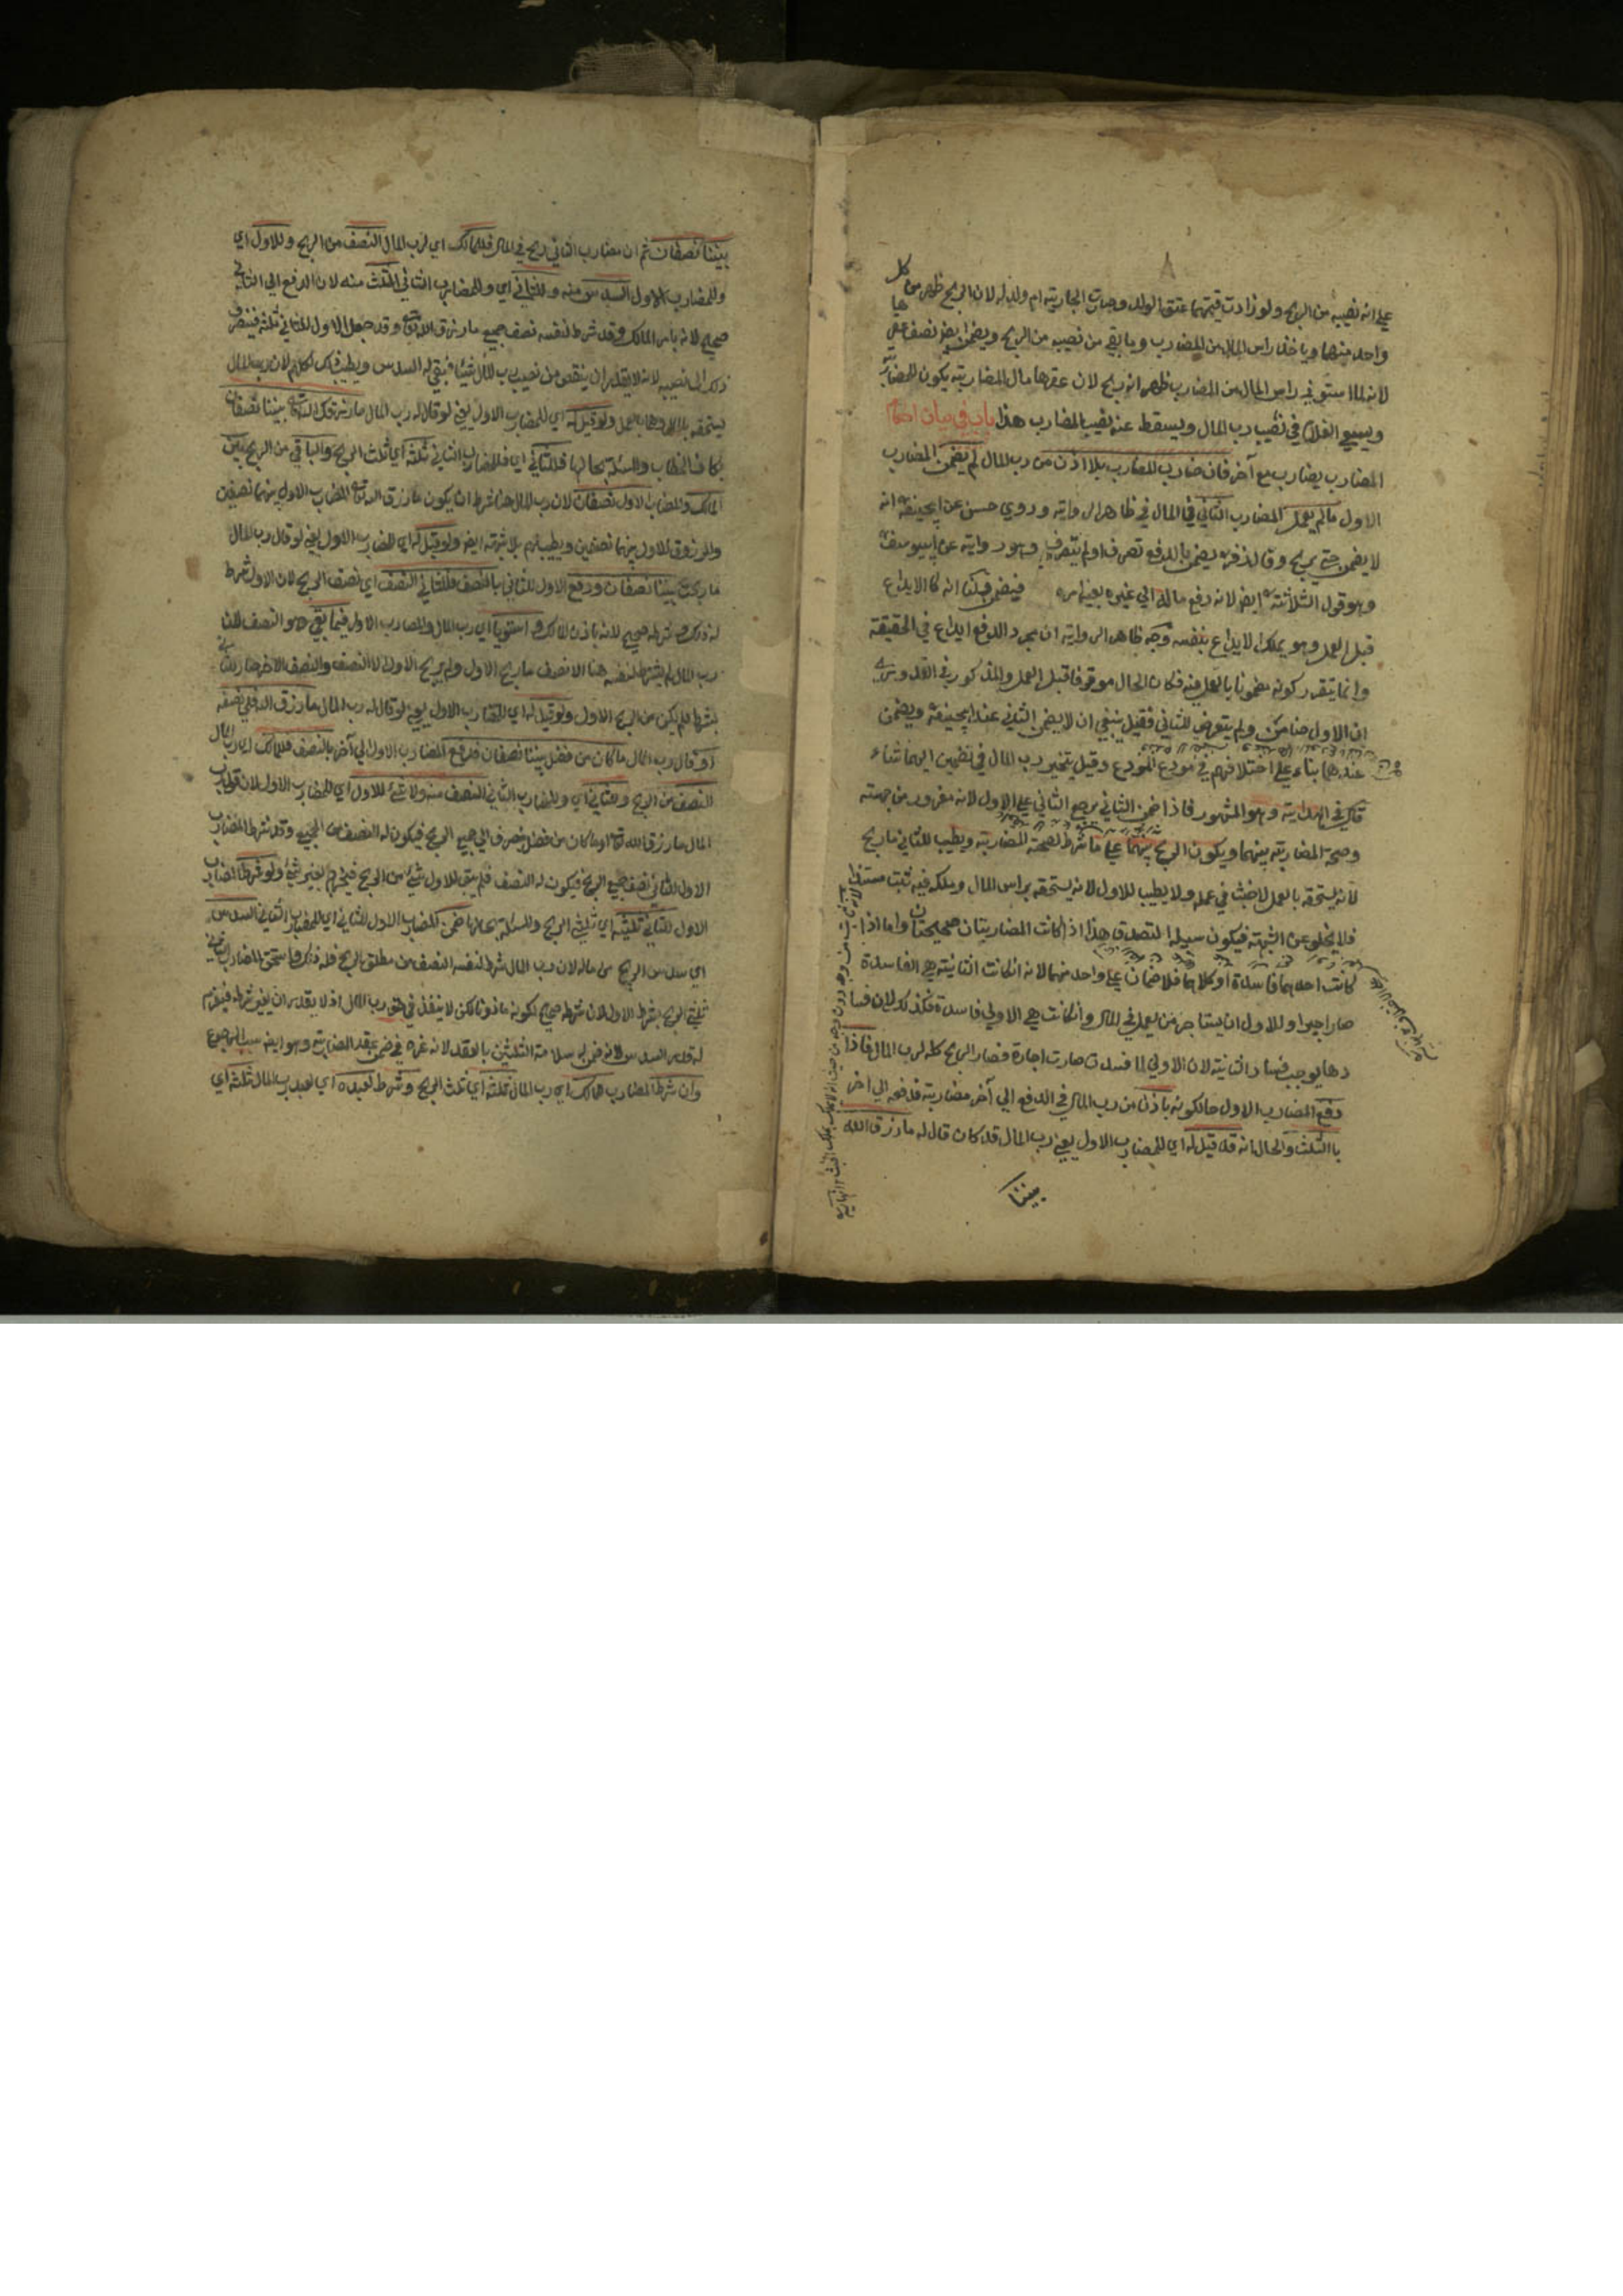 على انه نصيبه من الربح ولو زادت قيمتهما عتق الولد وصارت الجارية ام ولد له لان الربح ظهر من كل
واحد منهما وياخذ راس المال من المضارب وما بقي من نصيبه من الربح ويضمن ايض نصف عقرها
لانه لما استوفي راس المال من المضارب ظهر انه ربح لان عقرها مال المضاربة يكون للمضاربة
ويسعي الغلام في نصيب رب المال ويسقط عنه نصيب المضارب هذا باب في بيان احكام
المضارب يضارب مع آخر فان ضارب المضارب بلا اذن من رب المال لم يضمن المضارب
الاول مالم يعمل المضارب الثاني في المال في ظاهر الرواية وروي حسن عن ابيحنيفة انه
لا يضمن حتي يربح وقال زفر يضمن بالدفع تصرف اولم يتصرف وهو رواية عن ابييوسف
وهو قول الثلاثة ايض لانه دفع ماله الي غيره بغير امره فيضمن قلنا انه كالايداع
قبل العمل وهو يملك الايداع بنفسه وجه ظاهر الرواية ان مجرد الدفع ايداع في الحقيقة
وانما يتقرر كونه مضمونا بالعمل فيه فكان الحال موقوفا قبل العمل والمذكور في القدوري
ان الاول ضامن ولم يتعرض للثاني فقيل ينبغي ان لا يضمن الثاني عند ابيحنيفة ويضمن
عندهما بناء علي اختلافهم في مودع المودع وقيل يتخير رب المال في تضمين ايهما شاء
قال في الهداية وهو المشهور فاذا ضمن الثاني يرجع الثاني علي الاول لانه مغرور من جهته
وصح المضاربة بينهما ويكون الربح بينهما علي ما شرط لصحة المضاربة ويطيب للثاني ما ربح
لانه يستحقه بالعمل لا خبث في عمله ولا يطيب للاول لانه يستحقه براس المال وملكه فيه ثبت مستندا
فلا يخلو عن الشبهة فيكون سبيله التصدق هذا اذا كانت المضاربتان صحيحتان واما اذا
كانت احدهما فاسدة او كلاهما فلا ضمان علي واحد منهما لانه ان كانت الثانية هي الفاسدة
صار اجيرا وللاول ان يستاجر من يعمل في المال وان كانت هي الاولي فاسدة فكذلك لان فسا
دها يوجب فساد الثانية لان الاولي لما فسدت صارت اجارة فصار الربح كله لرب المال فاذا
دفع المضارب الاول حال كونه باذن من رب المال في الدفع الي آخر مضاربة فدفعه الي آخر
بالثلث والحال انه قد قيل له اي للمضارب الاول يعني رب المال قد كان قال له ما رزق الله
بيننا
بيننا نصفان ثم ان مضارب الثاني ربح في المال فللمالك اي لرب المال النصف من الربح وللاول اي
وللمضارب الاول السدس منه وللثاني اي وللمضارب الثاني الثلث منه لان الدفع الي الثاني
صحيح لانه بامر المالك وقد شرط لنفسه نصف جميع ما رزق الله تع وقد جعل الاول للثاني ثلثه فينصرف
ذلك الي نصيبه لانه لا يقدر ان ينقص من نصيب رب المال شيئا فبقي له السدس ويطيب ذلك لكلهم لان رب المال
يستحقه بالمال وهما بالعمل ولو قيل له اي للمضارب الاول يعني لو قال له رب المال ما رزقك الله تع بيننا نصفان
بكاف الخطاب والمسئلة بحالها فللثاني اي فللمضارب الثاني ثلثه اي ثلث الربح والباقي من الربح بين
المالك والمضارب الاول نصفان لان رب المال هنا شرط ان يكون ما رزق الله تع المضارب الاول بينهما نصفين
والمرزوق للاول بينهما نصفين ويطيب لهم بلا شبهة ايض ولو قيل له اي للمضارب الاول يعني لو قال رب المال
ما ربحت بيننا نصفان ودفع الاول للثاني بالنصف فللثاني النصف اي نصف الربح لان الاول شرط
له ذلك وشرطه صحيح لانه باذن المالك واستويا اي رب المال والمضارب الاول فيما بقي وهو النصف لان
رب المال لم يشترط لنفسه هنا الا نصف ما ربح الاول ولم يربح الاول الا النصف والنصف الاخر صار للثاني
بشرطه فلم يكن من الربح الاول ولو قيل له اي للمضارب الاول يعني لو قال له رب المال ما رزق الله فلي نصفه
او قال رب المال ما كان من فضل بيننا نصفان فدفع المضارب الاول الي آخر بالنصف فللمالك اي رب المال
النصف من الربح وللثاني اي وللمضارب الثاني النصف منه ولا شئ للاول اي للمضارب الاول لان قول رب
المال ما رزق الله تع او ما كان من فضل ينصرف الي جميع الربح فيكون له النصف من الجميع وقد شرط المضارب
الاول للثاني نصف جميع الربح فيكون له النصف فلم يبق للاول شئ من الربح فيخرج بغير شئ ولو شرط المضارب
الاول للثاني ثلثيه اي ثلثي الربح والمسئلة بحالها ضمن المضارب الاول للثاني اي للمضارب الثاني السدس
اي سدس الربح من ماله لان رب المال شرط لنفسه النصف من مطلق الربح فله ذلك واستحق المضارب الثاني
ثلثي الربح بشرط الاول لان شرطه صحيح لكونه ماذونا لكن لا ينفذ في حق رب المال اذ لا يقدر ان يغير شرطه فيغرم
له قدر السدس لانه ضمن له سلامة الثلثين بالعقد لانه غره في ضمن عقد المضاربة وهو ايض سبب الرجوع
وان شرط المضارب للمالك اي رب المال ثلثه اي ثلث الربح وشرط لعبده اي لعبد رب المال ثلثه اي